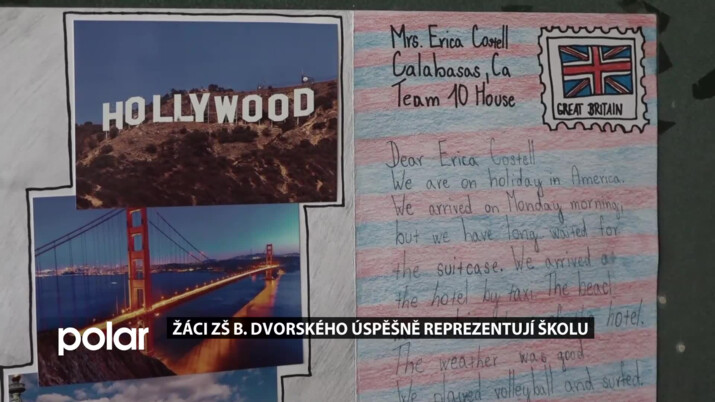 HOLLYWOOD
Mrs. Erica Costell
Calabasas, Ca
Team 10 House
GREAT BRITAIN
Dear Erica Costell
We are on holiday in America.
We arrived on Monday morning,
but we have long waited for
the suitcase. We arrived at
the hotel by taxi. The beach
hotel.
The weather was good.
We played volleyball and surfed
polar
ŽÁCI ZŠ B. DVORSKÉHO ÚSPĚŠNĚ REPREZENTUJÍ ŠKOLU